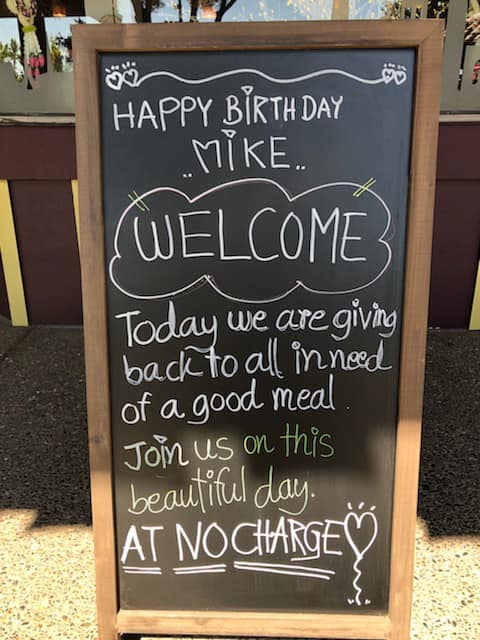 HAPPY BIRTHDAY
..MIKE..
WELCOME
Today we are giving
back to all in need
of a good meal.
Join us on this
beautiful day.
AT NO CHARGE